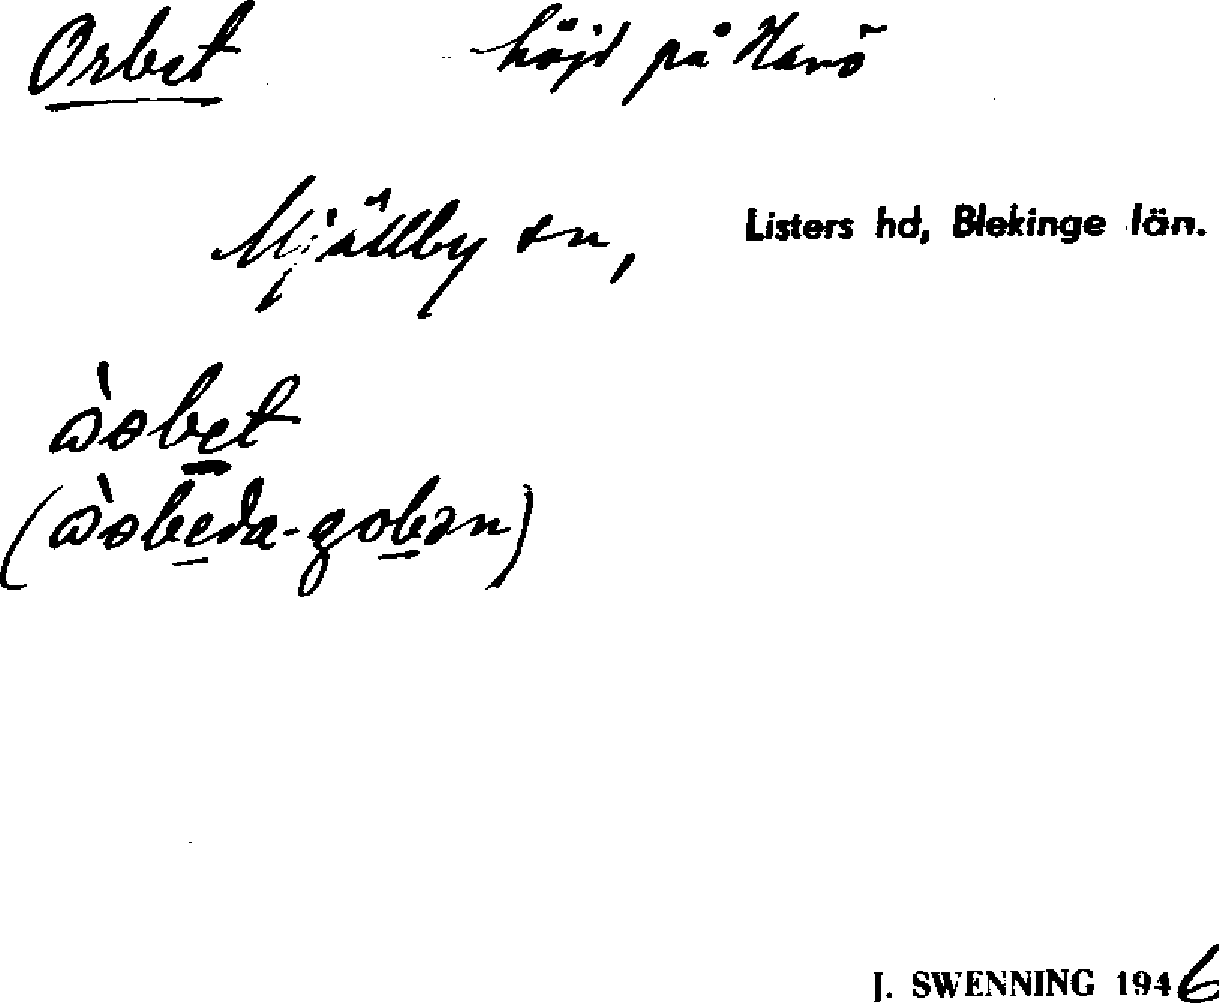 Orbet höjd på Hanö
Mjällby sn, Listers hd, Blekinge län.
ɷ̀əbet
(ɷ̀əbeda-gobən)
J. SWENNING 1946